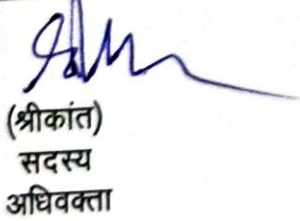 (श्रीकांत)
सदस्य
अधिवक्ता